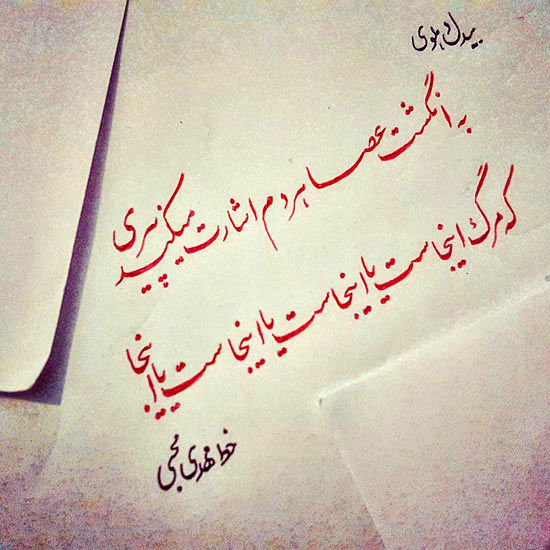 بیدل دهلوی
به انگشت عصا هر دم اشارت میکند پیری
که مرگ اینجاست یا اینجاست یا اینجاست یا اینجا
خط مهدی محبی